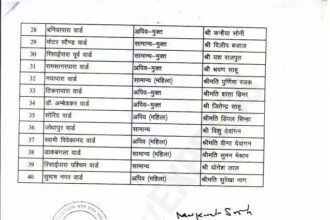 28 बनियापारा वार्ड अपिव-मुक्त श्री कन्हैया सोनी
29 मोटर स्टैण्ड वार्ड सामान्य-मुक्त श्री दिलीप बजाज
30 रिसाईपारा पूर्व वार्ड सामान्य-मुक्त श्री यश राजपूत
31 रामसागरपारा वार्ड सामान्य-मुक्त श्री श्रवण साहू
32 नयापारा वार्ड सामान्य (महिला) श्रीमति पूर्णिमा रजक
33 टिकरापारा वार्ड अपिव-मुक्त श्रीमति शांता ढिमर
34 डॉ. अम्बेडकर वार्ड अपिव-मुक्त श्री जितेन्द्र साहू
35 सोरिद वार्ड अपिव (महिला) श्रीमति डिपल सिन्हा
36 जोधापुर वार्ड सामान्य श्री विशु देवांगन
37 स्वामी विवेकानंद वार्ड अपिव (महिला) श्रीमति वीणा देवांगन
38 डाकबंगला वार्ड सामान्य (महिला) श्रीमति सुमन मेश्राम
39 रिसाईपारा पश्चिम वार्ड सामान्य श्री योगेश लाल
40 सुभाष नगर वार्ड अपिव (महिला) श्रीमति सुरेखा नाग